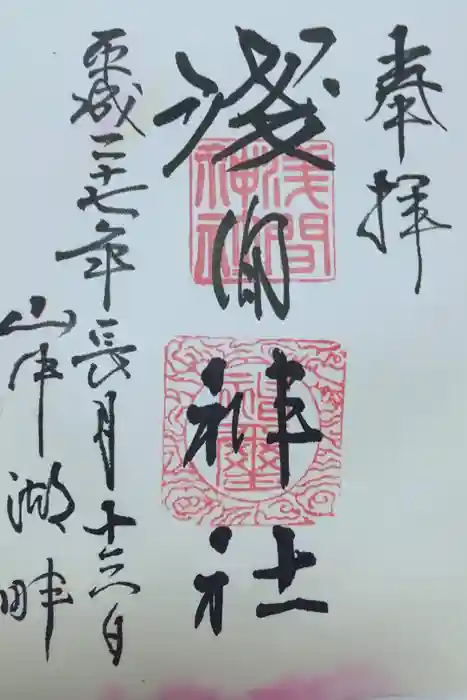 奉拝
淺間神社
平成二十七年長月十六日
山中湖畔
浅間
神社